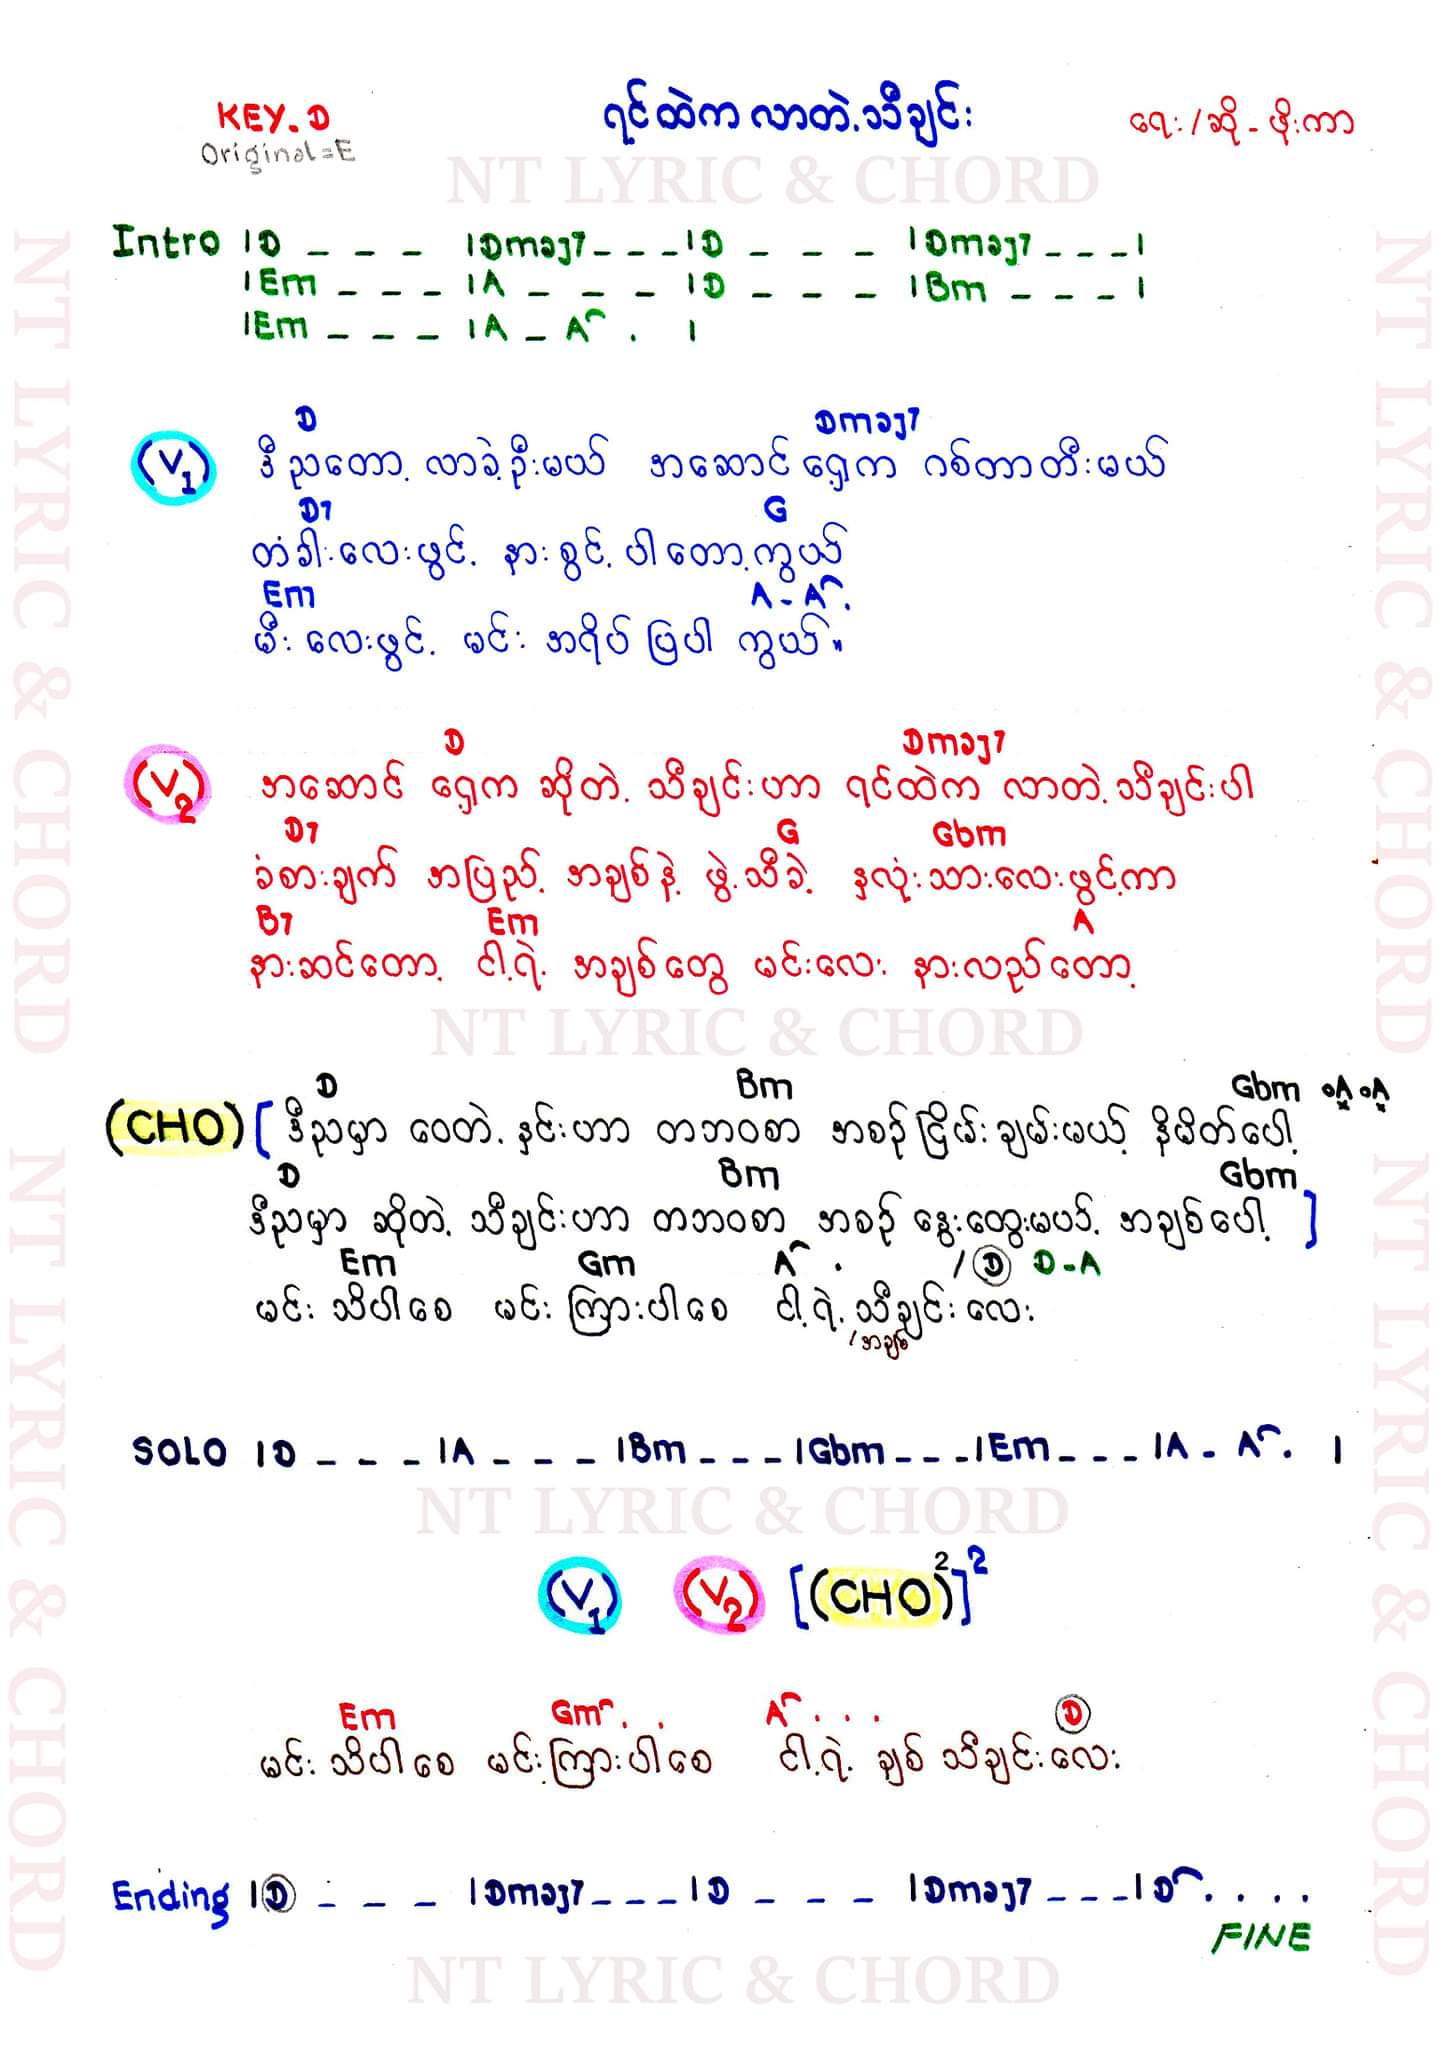 KEY. D
Original = E
ရင်ထဲကလာတဲ့သီချင်း
ရေး/ဆို - ဖိုးကာ
NT LYRIC & CHORD
Intro |D _ _ _ |Dmaj7 _ _ _ |D _ _ _ |Dmaj7 _ _ _ |
|Em _ _ _ |A _ _ _ |D _ _ _ |Bm _ _ _ |
|Em _ _ _ |A _ A⌒ . |
D Dmaj7
(V1) ဒီညတော့ လာခဲ့ဦးမယ် အဆောင်ရှေ့က ဂစ်တာတီးမယ်
D7 G
တံခါးလေးဖွင့် နားစွင့်ပါတော့ကွယ်
Em A - A⌒ .
မီးလေးဖွင့် မင်းအရိပ်ပြပါ ကွယ်။
D Dmaj7
(V2) အဆောင်ရှေ့က ဆိုတဲ့ သီချင်းဟာ ရင်ထဲက လာတဲ့သီချင်းပါ
D7 G Gbm
ခံစားချက် အပြည့် အချစ်နဲ့ ဖွဲ့သီခဲ့ နှလုံးသားလေးဖွင့်ကာ
B7 Em A
နားဆင်တော့ ငါ့ရဲ့ အချစ်တွေ မင်းလေး နားလည်တော့
NT LYRIC & CHORD
D Bm Gbm °A °A
(CHO) [ ဒီညမှာ ဝေတဲ့ နှင်းဟာ တဘဝစာ အစဉ်ငြိမ်းချမ်းမယ့် နိမိတ်ပေါ့
D Bm Gbm
ဒီညမှာ ဆိုတဲ့ သီချင်းဟာ တဘဝစာ အစဉ် နွေးထွေးမယ့် အချစ်ပေါ့ ]
Em Gm A⌒ . / D D - A
မင်း သိပါစေ မင်း ကြားပါစေ ငါ့ရဲ့ သီချင်းလေး
/အချစ်
SOLO |D _ _ _ |A _ _ _ |Bm _ _ _ |Gbm _ _ _ |Em _ _ _ |A - A⌒ . |
NT LYRIC & CHORD
(V1) (V2) [(CHO)²]²
Em Gm⌒ . . A⌒ . . . D
မင်း သိပါစေ မင်းကြားပါစေ ငါ့ရဲ့ ချစ် သီချင်းလေး
Ending |D _ _ _ |Dmaj7 _ _ _ |D _ _ _ |Dmaj7 _ _ _ |D⌒ . . . .
FINE
NT LYRIC & CHORD
NT LYRIC & CHORD
NT LYRIC & CHORD
NT LYRIC & CHORD
NT LYRIC & CHORD